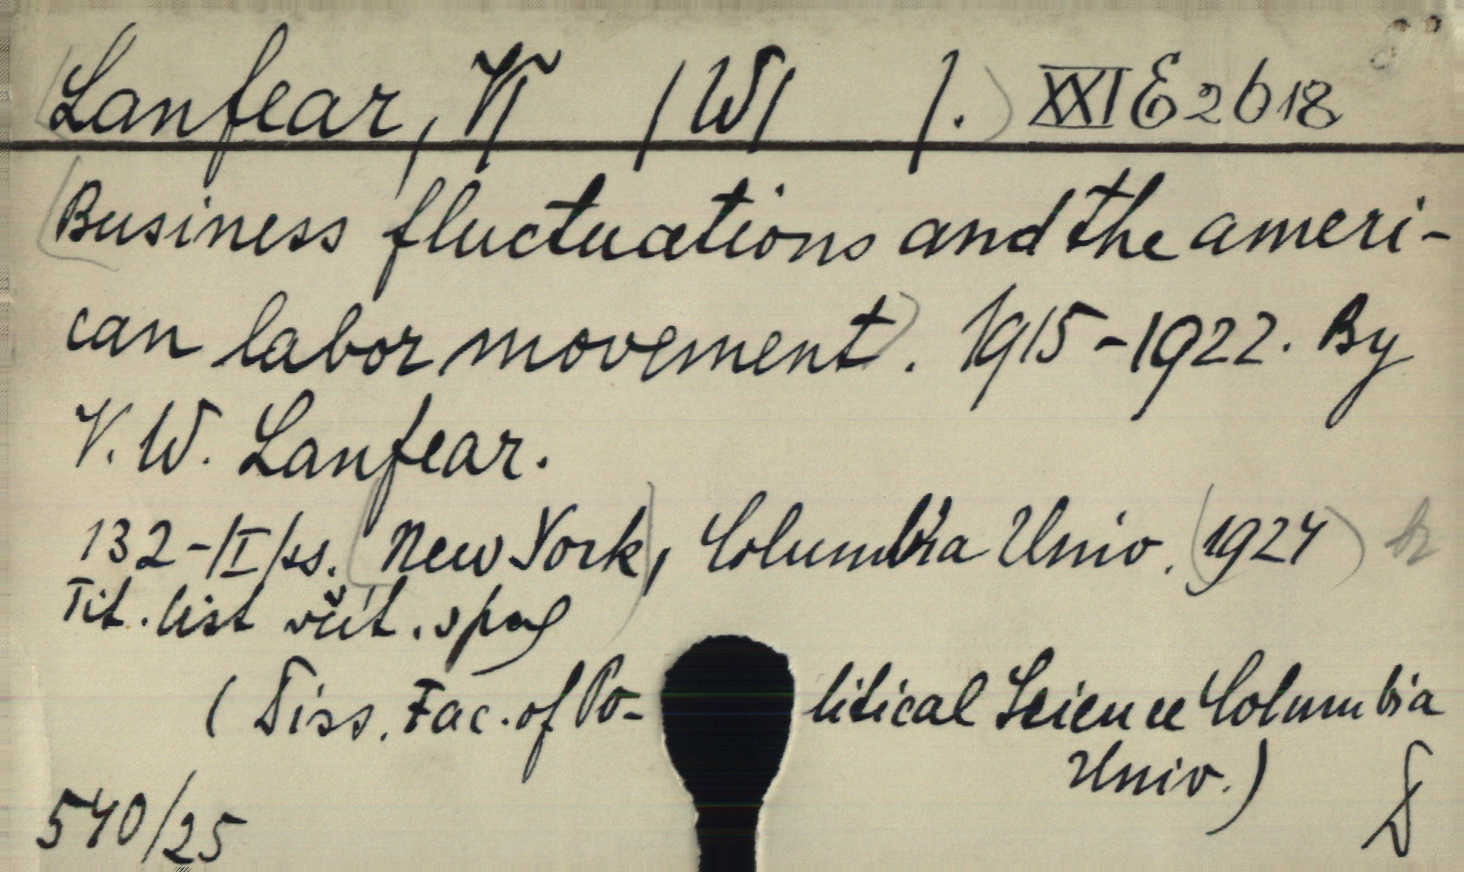 Lanfear, V /W/ /.) XXI E 2618
Business fluctuations and the ameri-
can labor movement). 1915-1922. By
V. W. Lanfear.
132-/I/ss. (New York), Columbia Univ. (1924)
Tit. list
(Diss. Fac. of Po- litical Science Columbia
Univ.)
540/25